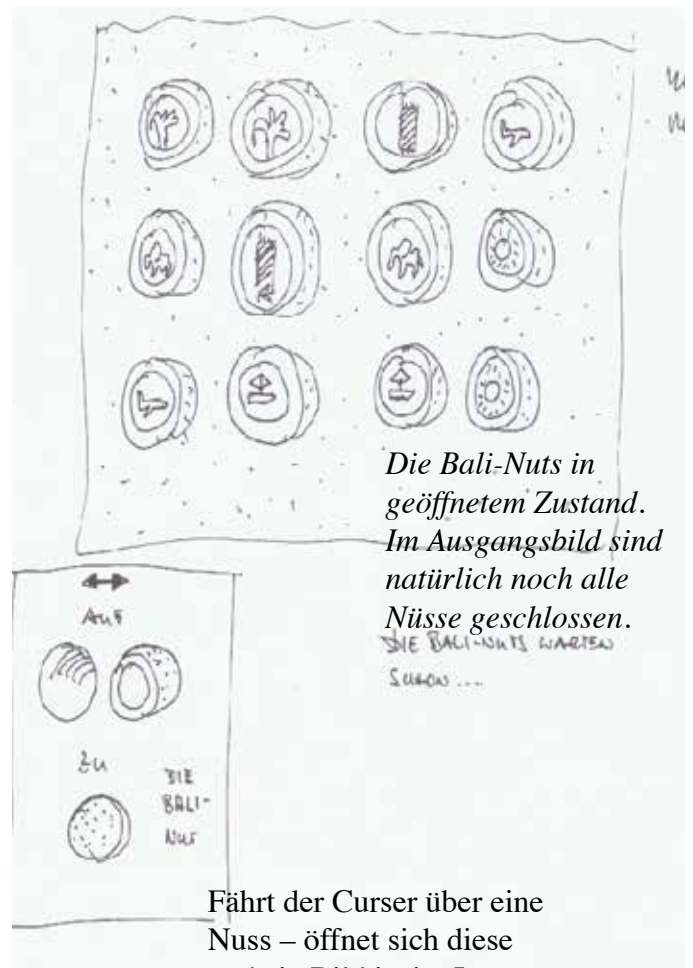 Die Bali-Nuts in
geöffnetem Zustand.
Im Ausgangsbild sind
natürlich noch alle
Nüsse geschlossen.
DIE BALI-NUTS WARTEN
SCHON ....
AUF
ZU
DIE
BALI-
NUT
Fährt der Curser über eine
Nuss – öffnet sich diese